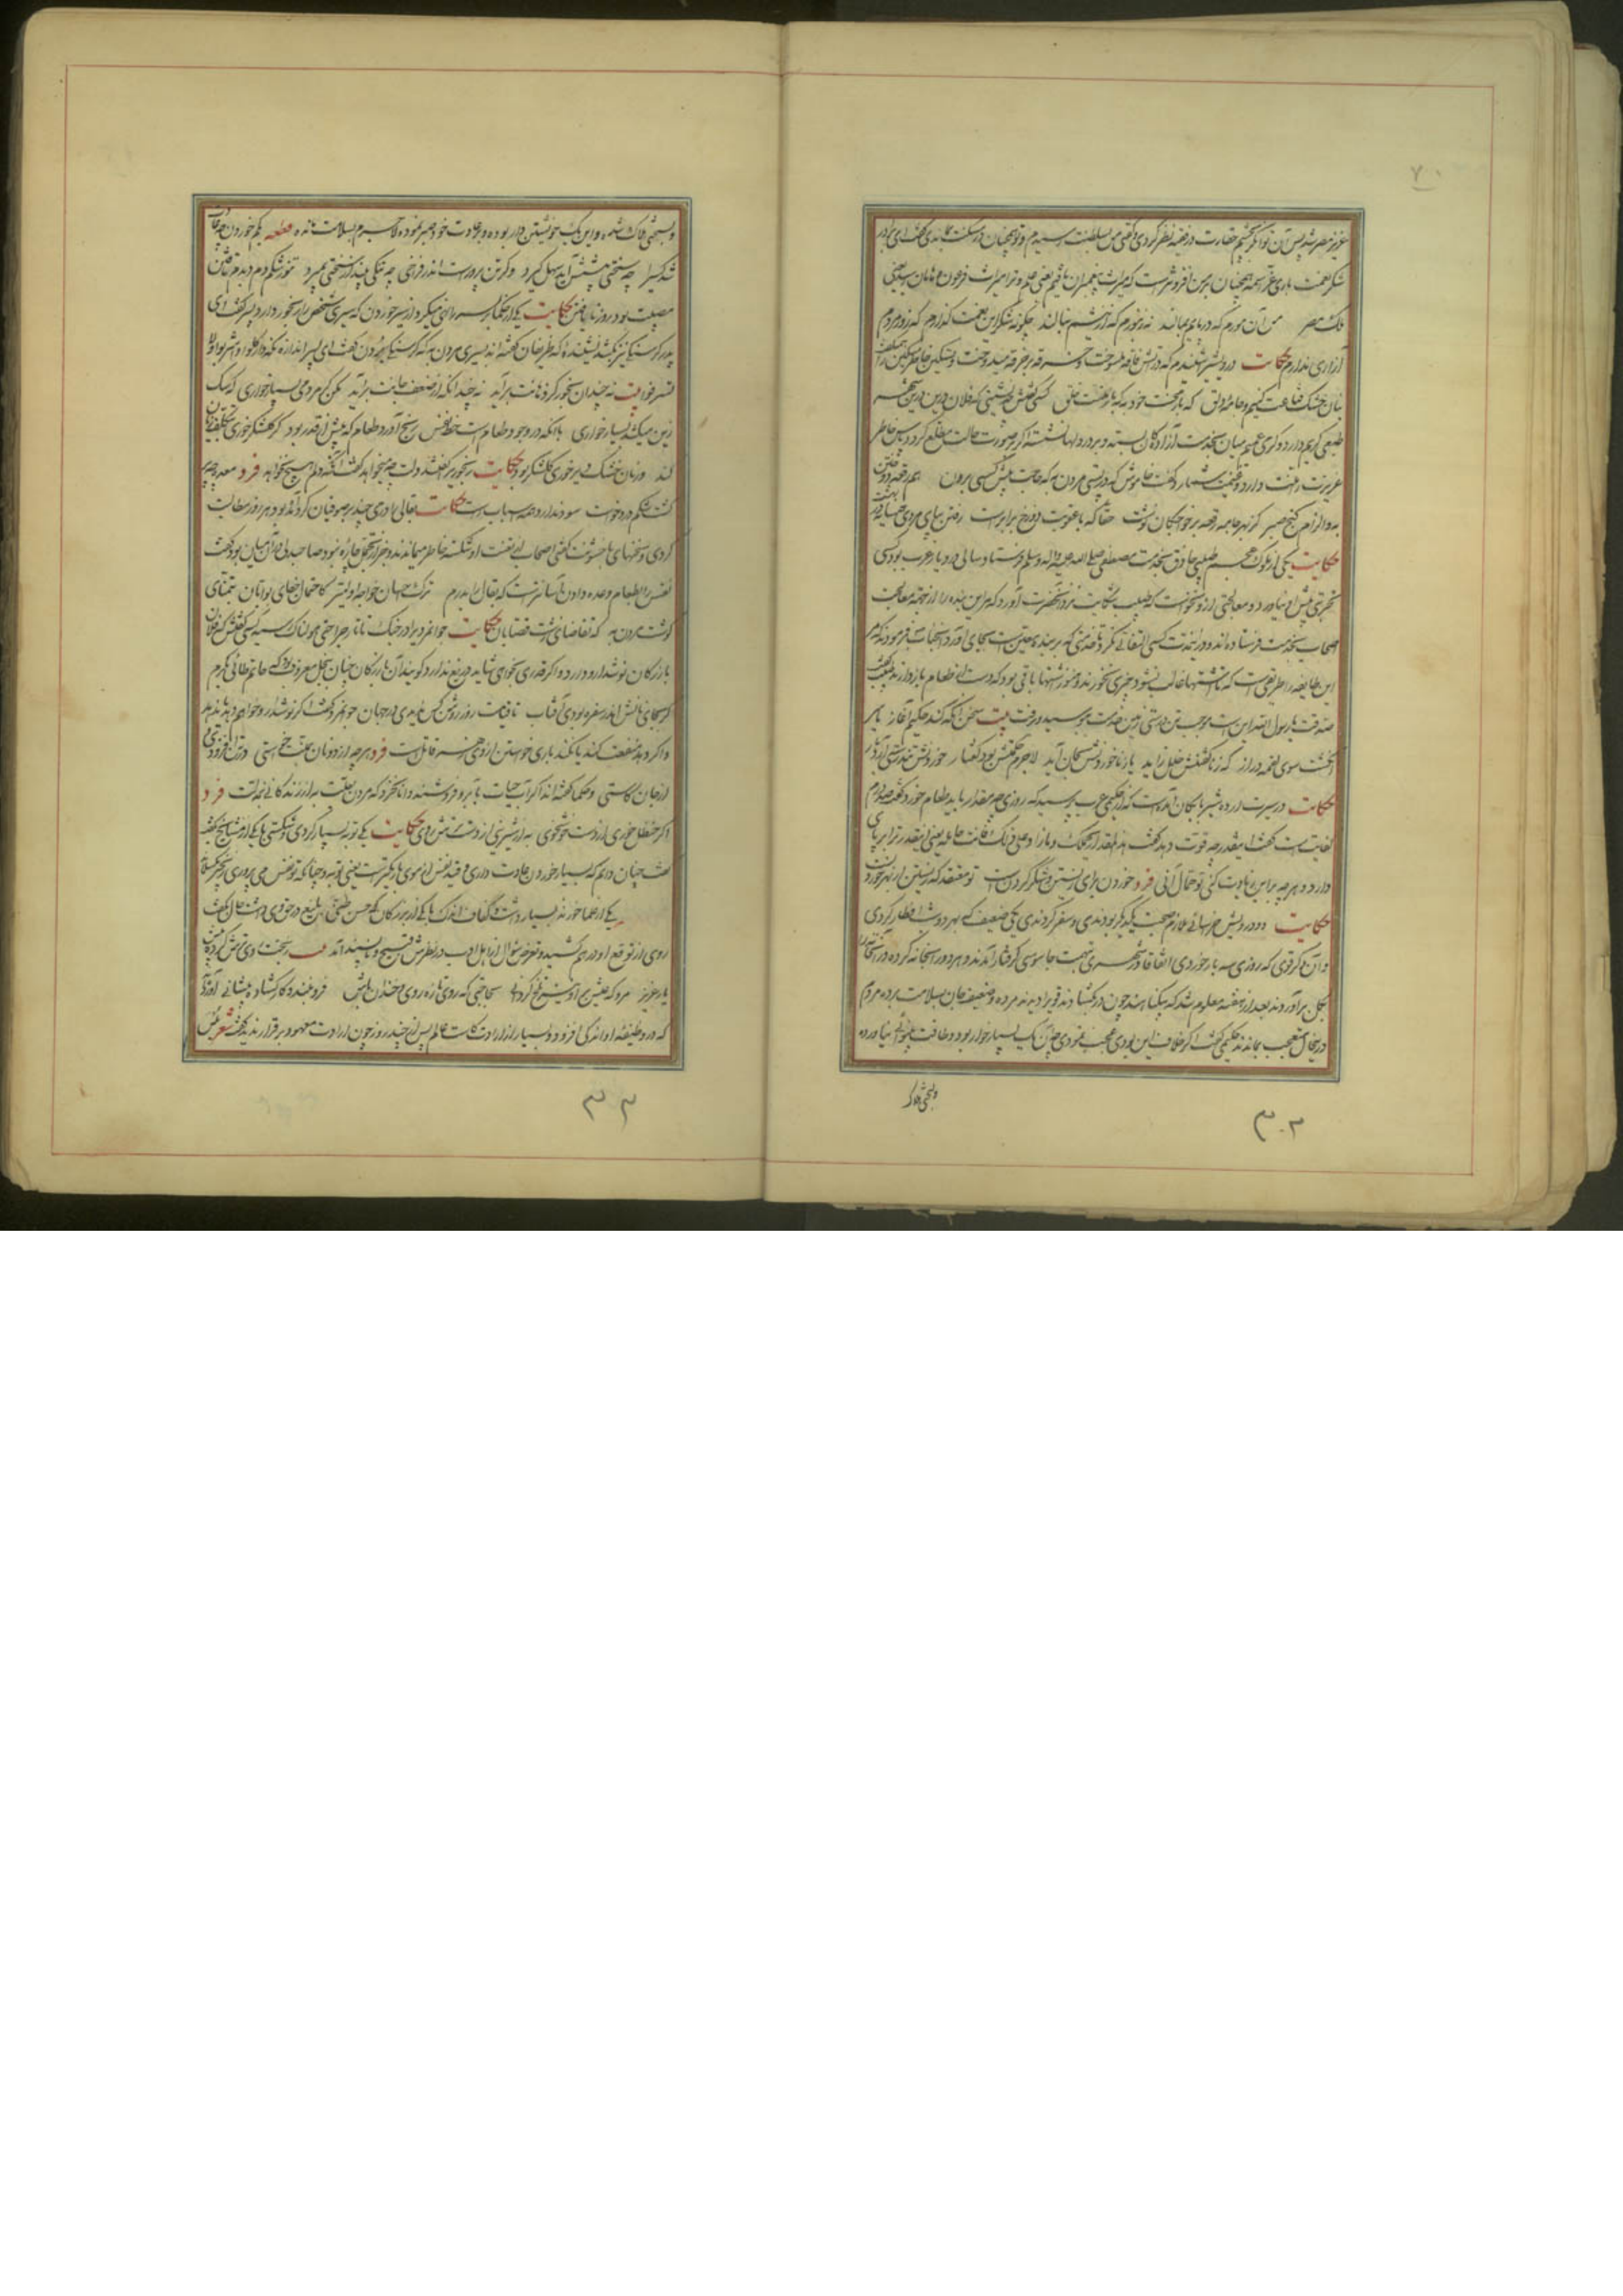 ۷۰
عزیز مصر شد پس آن توانگر بچشم حقارت در فقیه نظر کردی و گفتی من بسلطنت رسیدم و تو همچنان در مسکنت بماندی گفت ای برادر
شکر نعمت باری عز اسمه همچنان بر من افزونتر است که میراث پیغمبران یافتم یعنی علم و ترا میراث فرعون و هامان رسید یعنی
ملک مصر من آن مورم که در پایم بمالند نه زنبورم که از نیشم بنالند چگونه شکر این نعمت گذارم که زور مردم
آزاری ندارم حکایت درویشی را شنیدم که در آتش فاقه میسوخت و خرقه بر خرقه میدوخت و تسکین خاطر مسکین را
بنان خشک قناعت کنیم و جامه دلق که بار محنت خود به که بار منت خلق کسی گفتش چه نشینی که فلان درین شهر
طبعی کریم دارد و کرمی عمیم میان بخدمت آزادگان بسته و بر در دلها نشسته اگر بر صورت حالت مطلع گردد پاس خاطر
عزیزت منت دارد و غنیمت شمارد گفت خاموش که در پستی مردن به که حاجت پیش کسی بردن هم رقعه دوختن
به و الزام کنج صبر کز بهر جامه رقعه بر خواجگان نوشت حقا که با عقوبت دوزخ برابر است رفتن بپای مردی همسایه در بهشت
حکایت یکی از ملوک عجم طبیبی حاذق بخدمت مصطفی صلی الله علیه و اله و سلم فرستاد سالی در دیار عرب بود کسی
تجربتی پیش او نیاورد و معالجتی ازو نخواست که طبیب شکایت نزد آنحضرت آورد که مر این بنده را از جهة معالجت
اصحاب بخدمت فرستاده اند و در این مدت کسی التفاتی نکرد تا خدمتی که بر بنده معین است بجای آورد آنجناب فرمودند که مر
این طایفه را طریقی است که تا اشتها غالب نشود چیزی نخورند و هنوز اشتها باقی بود که دست از طعام باز دارند طبیب گفت
صدقت یا رسول الله این است موجب تن درستی زمین خدمت ببوسید و رفت بیت سخن آنگه کند حکیم آغاز یا سر
انگشت سوی لقمه دراز که ز ناگفتنش خلل زاید یا ز ناخوردنش بجان آید لاجرم حکمتش بود گفتار خوردنش تندرستی آرد بار
حکایت در سیرت اردشیر بابکان آمده است که از حکیمی عرب پرسید که روزی چه مقدار باید طعام خورد گفت صد درم
کفایت است گفت اینقدر چه قوت دهد گفت هذا المقدار یحملک و ما زاد علی ذلک فانت حامله یعنی اینقدر ترا بر پای
دارد و هر چه بر این زیادت کنی تو حمال آنی فرد خوردن برای زیستن و شکر کردن است تو معتقد که زیستن از بهر خوردنست
حکایت دو درویش خراسانی ملازم صحبت یکدیگر بودندی و سفر کردندی یکی ضعیف که بهر دو شب افطار کردی
و آن دگر قوی که روزی سه بار خوردی اتفاقا در شهری بتهمت جاسوسی گرفتار آمدند و هر دو را بخانه کرده در آنجا را
بگل برآوردند بعد از دو هفته معلوم شد که بیگناهند چون در گشادند قوی را دیدند مرده و ضعیف جان بسلامت برده مردم
در این حال متعجب بماندند حکیمی گفت اگر خلاف این بودی عجب نمودی چه آن یک بسیار خوار بود و طاقت بینوائی نیاورده
و بسختی هلاک
۳۰۲
و بسختی هلاک شده و این یک خویشتن دار بوده و بر عادت خود صبر نموده لاجرم بسلامت مانده قطعه بکم خوردن چو عادت
شد کسی را چو سختی پیشش آید سهل گیرد و گر تن پرورست اندر فراخی چو تنگی بیند از سختی بمیرد تنور شکم دم بدم تافتن
مصیبت بود روز نایافتن حکایت یکی از حکما پسر را نهی میکرد از بسیار خوردن که سیری شخص را رنجور دارد پسر گفت ای
پدر گرسنگی نیز بکشد نشنیده که ظریفان گفته اند بسیری مردن به که گرسنگی بردن گفت ای پسر اندازه نگهدار کلوا و اشربوا و لا
تسرفوا بیت نه چندان بخور کز دهانت برآید نه چندانکه از ضعف جانت برآید مکن گر مردمی بسیار خواری که سگ
زین میکشد بسیار خواری با آنکه در وجود طعام است حظ نفس رنج آورد طعام که بیش از قدر بود گر گلشکر خوری بتکلف زیان
کند ور نان خشک دیر خوری گلشکر بود حکایت رنجوری را گفتند دلت چه میخواهد گفت آنکه دلم هیچ نخواهد فرد معده چو پر
گشت و شکم درد خواست سود ندارد همه اسباب راست حکایت بقالی را درمی چند بر صوفیان گرد آمده بود هر روز مطالبت
کردی و سخنهای با خشونت گفتی اصحاب از تعنت او شکسته خاطر میماندند و جز از تحمل چاره نبود صاحبدلی در آن میان بود گفت
نفس را بطعام وعده دادن آسانتر است که بقال را بدرم ترک احسان خواجه اولیتر کاحتمال جفای بوابان بتمنای
گوشت مردن به که تقاضای زشت قصابان حکایت جوانمردی را در جنگ تاتار جراحتی هولناک رسید کسی گفتش که فلان
بازرگان نوشدارو دارد و اگر قدری بخواهی شاید دریغ ندارد گویند آن بازرگان چنان ببخل معروف بود که حاتم طائی بکرم
گر بجای نانش اندر سفره بودی آفتاب تا قیامت روز روشن کس ندیدی در جهان جوانمرد گفت اگر نوشدارو خواهم دهد یا ندهد
و اگر دهد منفعت کند یا نکند باری خواستن ازو زهر قاتل است فرد هر چه از دونان بمنت خواستی در تن افزودی و
از جان کاستی و حکما گفته اند اگر آب حیات بآبرو فروشند دانا نخرد که مردن بعلت به از زندگانی بذلت فرد
اگر حنظل خوری از دست خوشخوی به از شیرینی از دست ترش روی حکایت یکی توبه بسیار کردی و شکستی تا یکی از مشایخ گفتش
گفت چنان دانم که بسیار خوردن عادت داری و قید نفس از موی باریکتر است یعنی توبه و چنانکه تو نفس می پروری زنجیر بگسلاند
یکی از علما خورنده بسیار داشت و کفاف اندک با یکی از بزرگان که حسن ظنی بلیغ در حق وی داشت حال بگفت
روی از توقع او درهم کشید و تعرض سؤال از اهل ادب در نظرش قبیح و ناپسند آمد بیت ز بخت روی ترش کرده پیش
یار عزیز مرو که عیش بر او نیز تلخ گردانی بحاجتی که روی تازه روی و خندان باش فرو نبندد کار گشاده پیشانی آورده اند
که در وظیفه او اندکی افزود و بسیار از ارادت کاست عالم پس از چند روز چون ارادت معهود برقرار ندید گفت شعر بئس
۳۰۳